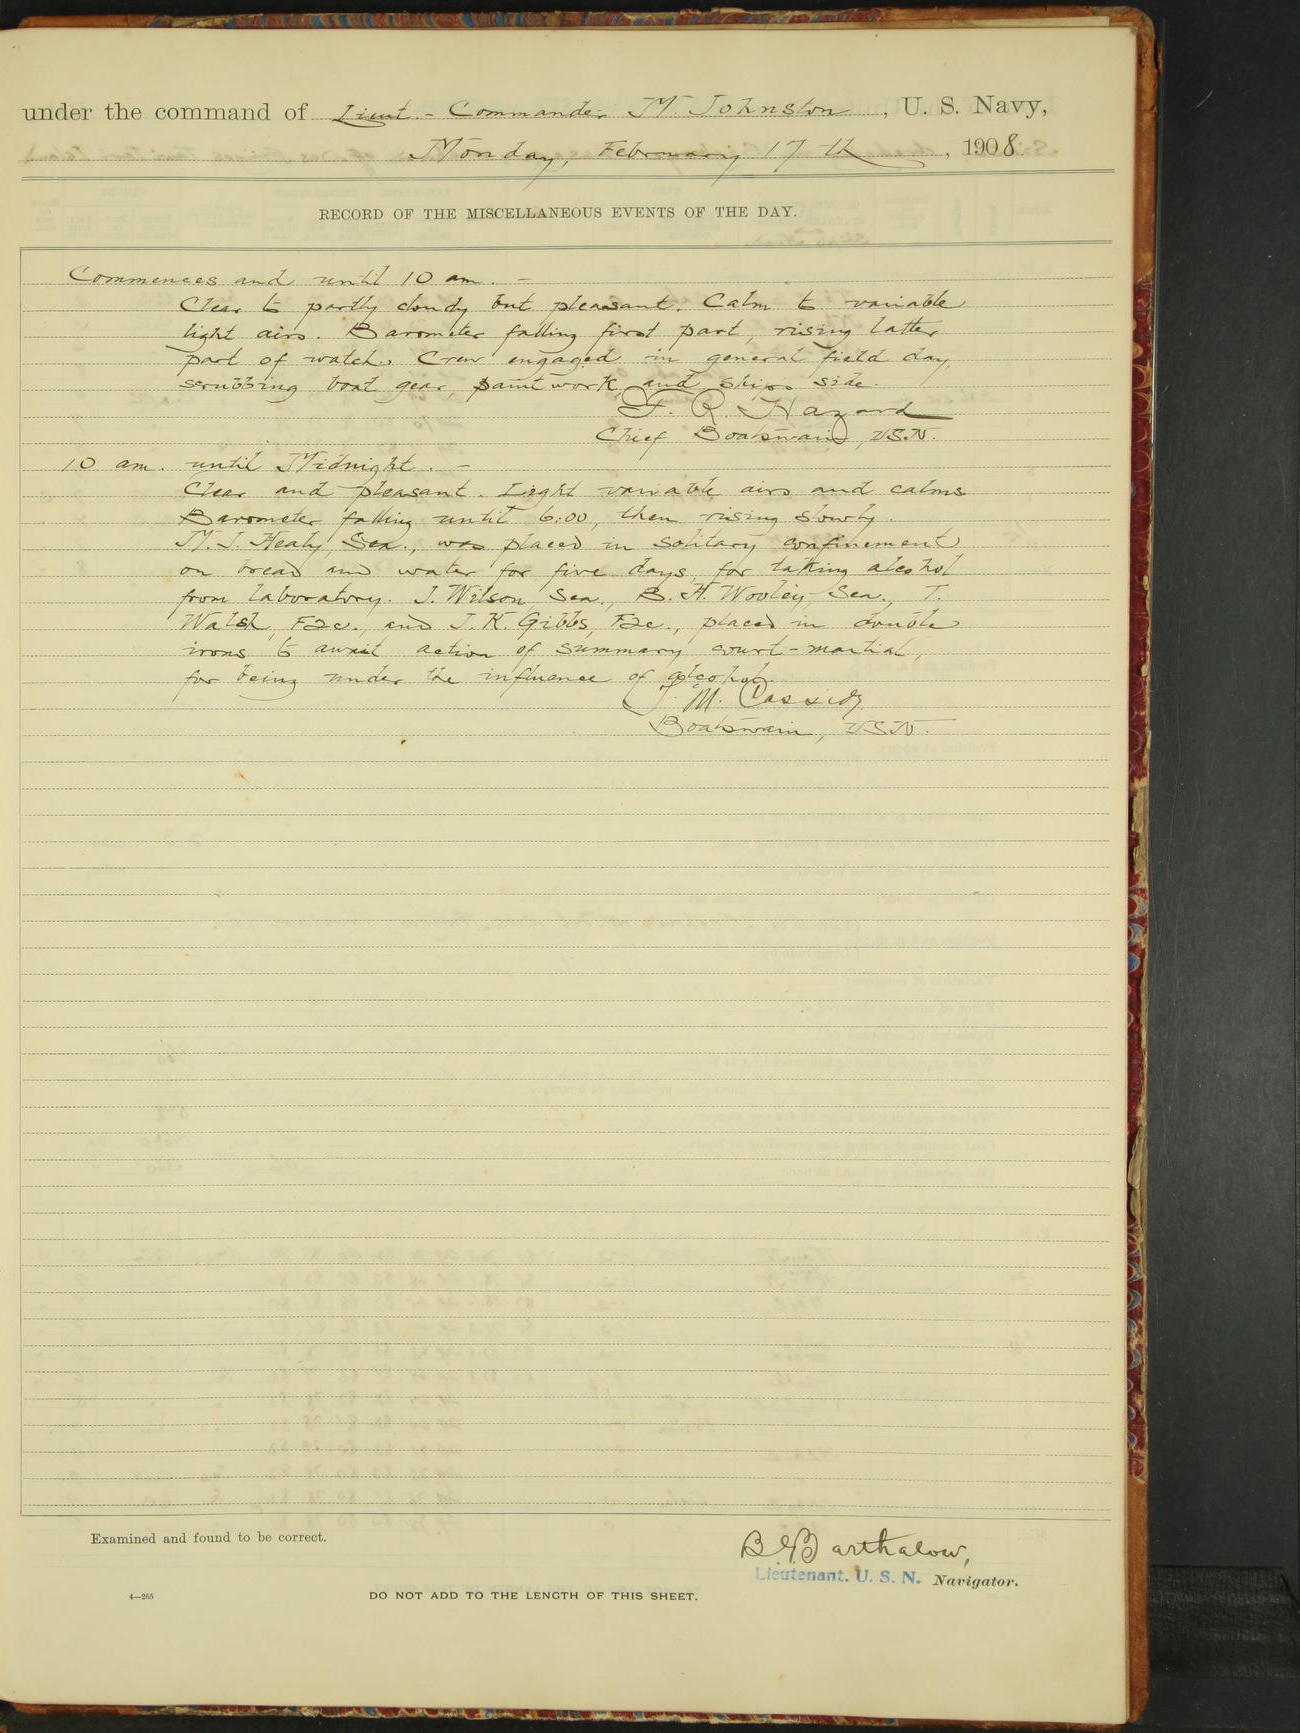 under the command of Lieut. - Commander M. Johnston, U. S. Navy,
Monday, February 17th, 1908.
RECORD OF THE MISCELLANEOUS EVENTS OF THE DAY.
Commences and until 10 am. -
Clear to partly cloudy but pleasant. Calm to variable
light airs. Barometer falling first part, rising latter
part of watch. Crew engaged in general field day,
scrubbing boat gear, paintwork and ships side.
F. R. Hazard
Chief Boatswain, USN.
10 am. until Midnight. -
Clear and pleasant. Light variable airs and calms.
Barometer falling until 6:00, then rising slowly.
M. J. Healy, Sea., was placed in solitary confinement
on bread and water for five days, for taking alcohol
from laboratory. J. Wilson, Sea., B. H. Wooley, Sea., T.
Walsh, F2c., and J. K. Gibbs, F2c., placed in double
irons to await action of summary court-martial,
for being under the influence of alcohol.
J. M. Cassidy
Boatswain, USN.
Examined and found to be correct.
B. B. Barthalow,
Lieutenant. U. S. N. Navigator.
4—265
DO NOT ADD TO THE LENGTH OF THIS SHEET.